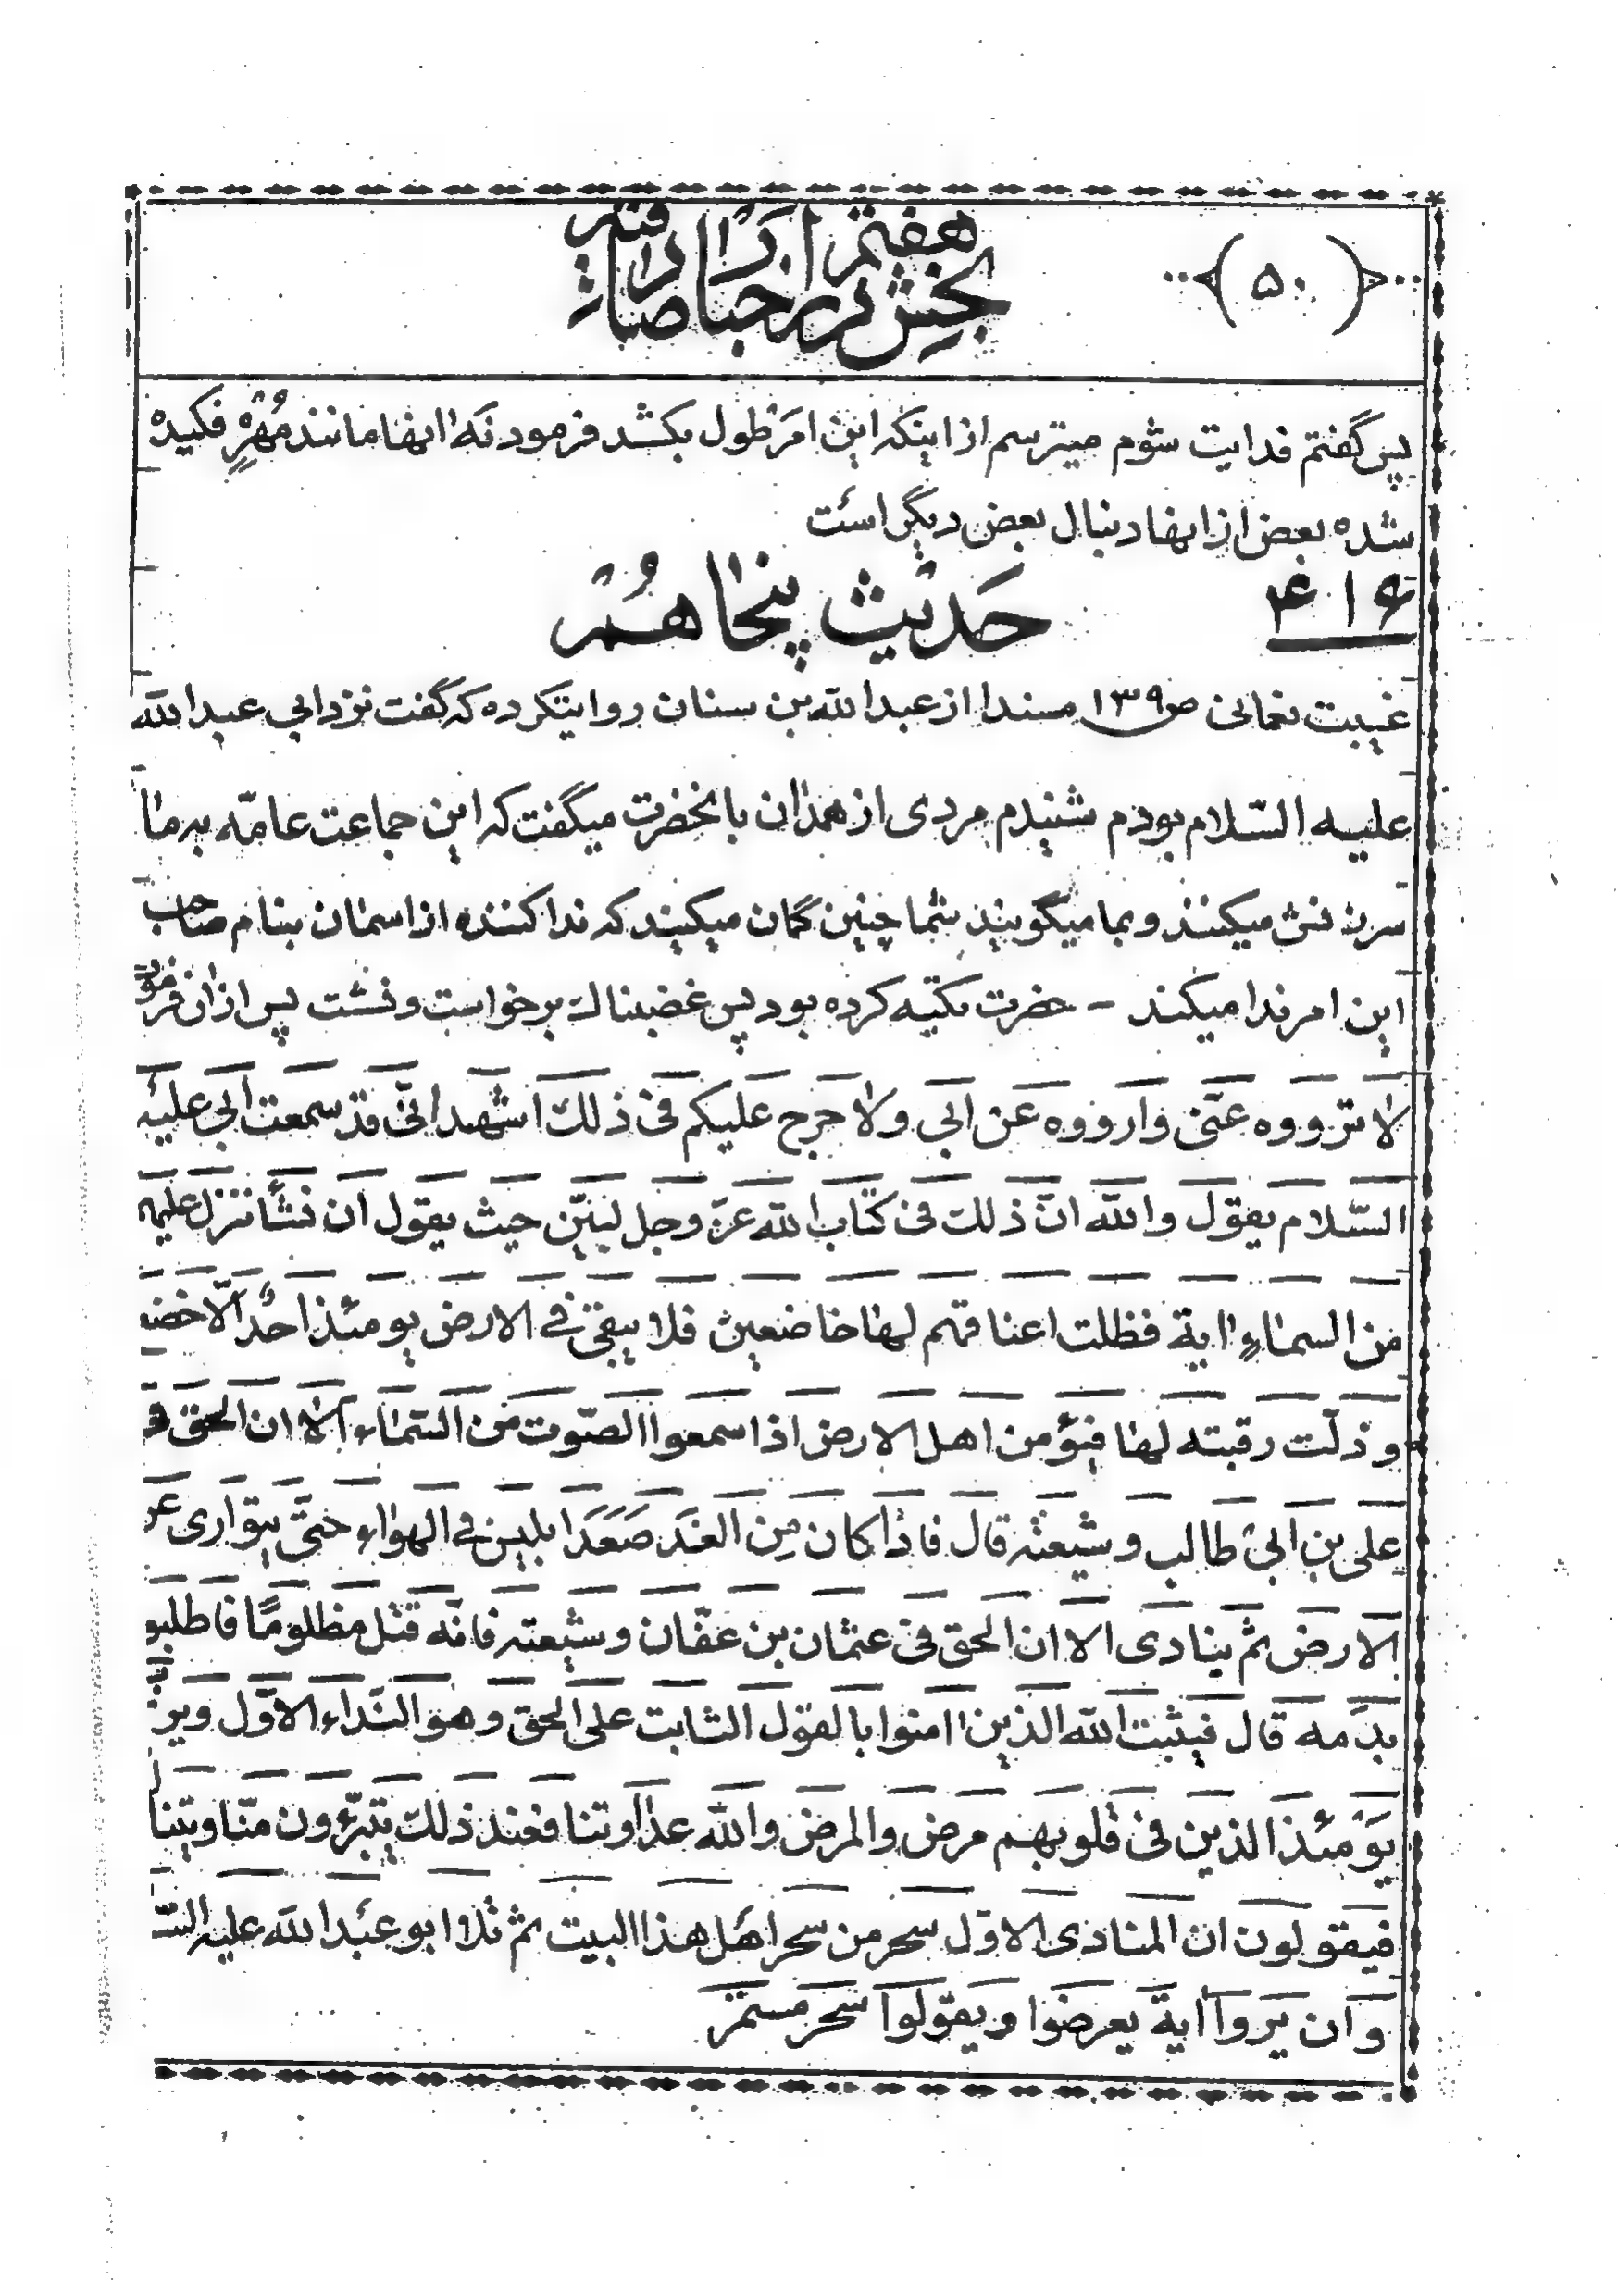 (۵۰)
بخش هفتم در اخبار صادقیه
پس گفتم فدایت شوم میترسم از اینکه این امر طول بکشد فرمود نه انها مانند مهره
شده بعض از انها دنبال بعض دیگر است
۴۱۶ حدیث پنجاهم
غیبت نعمانی ص۱۳۹ مسندا از عبدالله بن سنان روایتکرده که گفت نزد ابی عبدالله
علیه السّلام بودم شنیدم مردی از همدان بانحضرت میگفت که این جماعت عامّه به ما
سرزنش میکنند و بما میگویند شما چنین گمان میکنید که نداکننده از اسمان بنام صاحب
این امر ندا میکند - حضرت تکیه کرده بود پس غضبناک برخواست و نشست پس از ان فرمود
لا ترووه عنّی وارووه عن ابی ولا حرج علیکم فی ذلک اشهد انّی قد سمعت ابی علیه
السّلام یقول والله انّ ذلک فی کتاب الله عزّ وجل لبیّن حیث یقول ان نشأ ننزل علیهم
من السماء اایة فظلت اعناقهم لها خاضعین فلا یبقی فی الارض یومئذ احد الّا خضع
و ذلّت رقبته لها فیؤمن اهل الارض اذا سمعوا الصّوت من السّماء الا ان الحق فی
علی بن ابی طالب و شیعته قال فاذا کان من الغد صعد ابلیس فی الهواء حتّی یتواری عن
الارض ثم ینادی الا ان الحق فی عثمان بن عفّان و شیعته فانّه قتل مظلومًا فاطلبوا
بدمه قال فیثبت الله الذین اامنوا بالقول الثابت علی الحق و هو النّداء الاوّل و
یومئذ الذین فی قلوبهم مرض والمرض والله عداوتنا فعند ذلک یتبرّءون منّا
فیقولون ان المنادی الاوّل سحر من سحر اهل هذا البیت ثم تلا ابو عبدالله علیه
و ان یروا اایة یعرضوا و یقولوا سحر مستمر